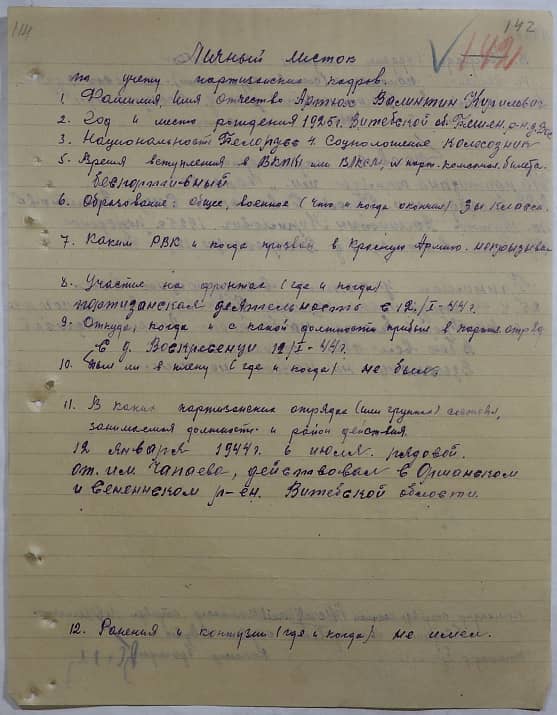 142
142
Личный листок
по учету партизанских кадров.
1. Фамилия, Имя Отчество Артюх Валинтин Кирилович
2. Год и место рождения 1925 г. Витебской об.
3. Национальность Белорус 4. Соцположение колхозник
5. Время вступления в ВКП(б) или ВЛКСМ, № парт. комсомол. билета.
беспортивный
6. Образование: общее, военное (что и когда окончил) 3ы класса.
7. Каким РВК и когда призван в Красную Армию. непрызывал
8. Участие на фронтах (где и когда)
портизанская деятельность с 12/I-44г.
9. Откуда, когда и с какой должности прибыл в партиз. отряд
с д. Воскресенци 12/I-44г.
10. Был ли в плену (где и когда) не был
11. В каких партизанских отрядах (или группах) состоял,
занимаемая должность и район действия.
12 января 1944г. 6 июля рядовой.
от. им. Чапаева, действовал в Оршанском
и Сененнском р-ен. Витебской области.
12. Ранения и контузии (где и когда) не имел.